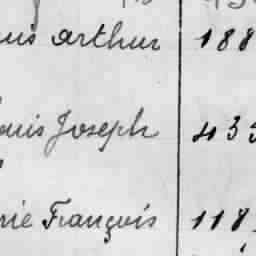 uis Arthur 188
ouis Joseph 435
rie François 118